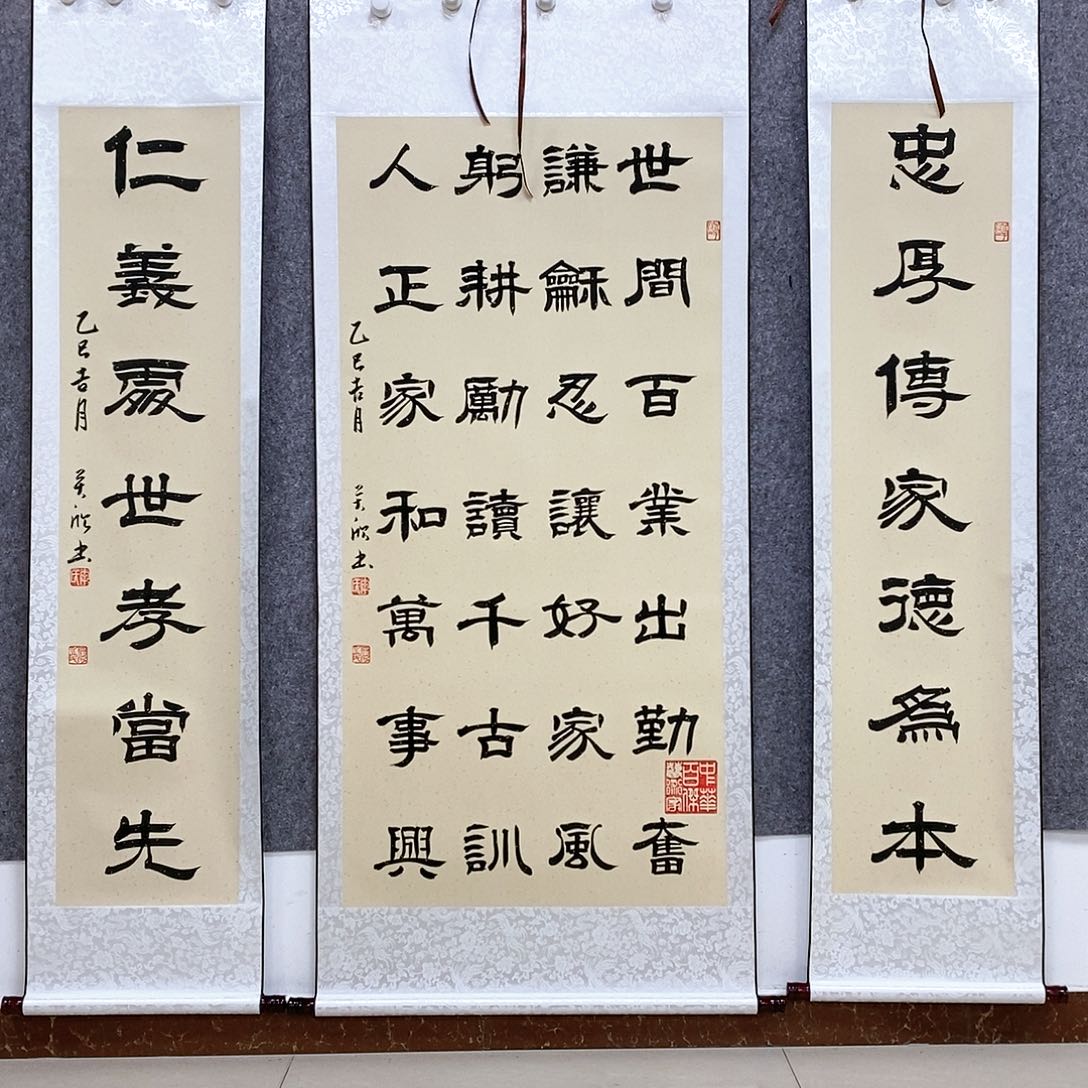 忠厚傳家德為本
世間百業出勤奮
謙龢忍讓好家風
躬耕勵讀千古訓
人正家和萬事興
乙巳吉月
書
中華百傑
仁義處世孝當先
乙巳吉月
書